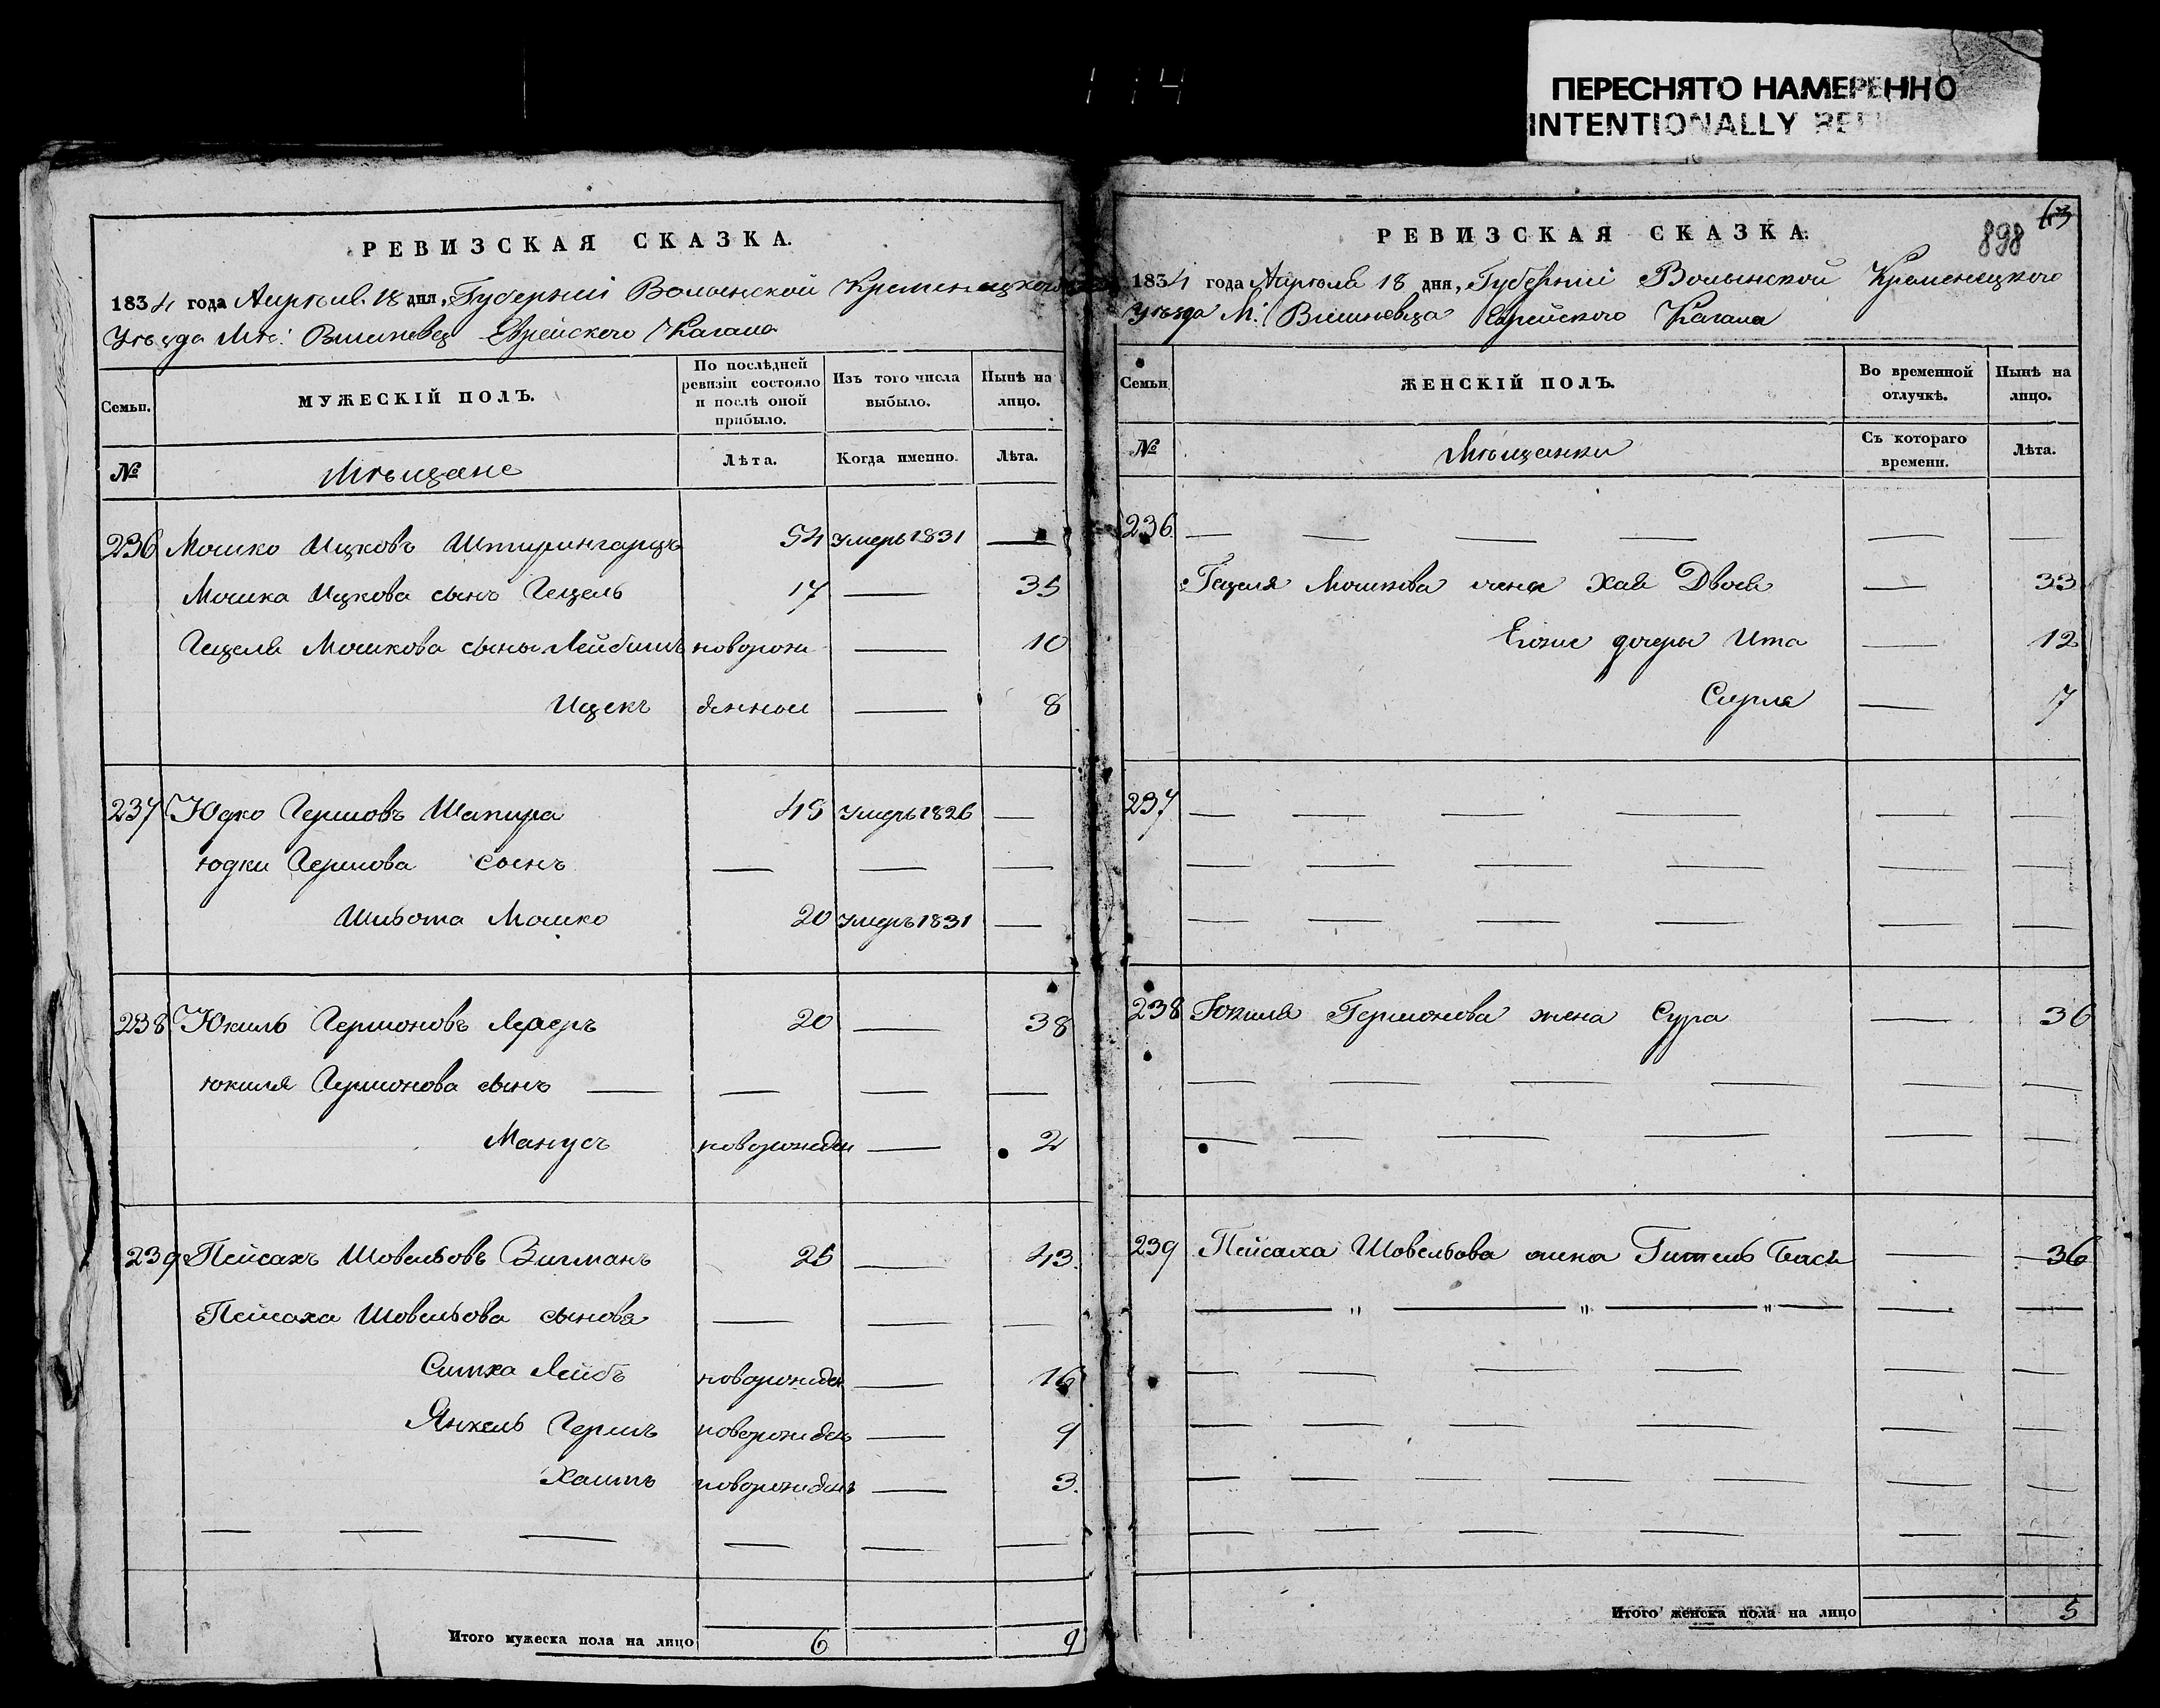 ПЕРЕСНЯТО НАМЕРЕННО
INTENTIONALLY
РЕВИЗСКАЯ СКАЗКА.
1834 года Апрѣля 18 дня, Губерніи Волынской Кременецкого
Уѣзда Мѣ: Вишневец Еврейского Кагала
Семьи.
МУЖЕСКІЙ ПОЛЪ.
По послѣдней ревизіи состояло и послѣ оной прибыло.
Изъ того числа выбыло.
Нынѣ на лицо.
№
Мѣщане
Лѣта.
Когда именно.
Лѣта.
236 Мошко Ицковъ 54 Умеръ 1831 —
Мошка Ицкова сынъ Гецель 17 — 35
Гецеля Мошкова сыны Лейбишъ новорож — 10
Ицекъ денные — 8
237 Юдко Гершовъ Шапира 45 Умеръ 1826 —
Юдки Гершова сынъ — — —
Мошко 20 Умеръ 1831 —
238 Юкиль Гершоновъ 20 — 38
Юкиля Гершонова сынъ — — — —
Манусъ новорожден — 2
239 Пейсахъ Шовельовъ 25 — 43.
Пейсаха Шовельова сыновя — — —
Симха Лейбъ новорожден — 16
Янкель Гершъ новорожденъ — 9
Хаимъ новорожденъ — 3.
— — — — — —
Итого мужеска пола на лицо 6 9
РЕВИЗСКАЯ СКАЗКА.
898
1834 года Апрѣля 18 дня, Губерніи Волынской Кременецкого
Уѣзда М: Вишневца Еврейского Кагала
Семьи
ЖЕНСКІЙ ПОЛЪ.
Во временной отлучкѣ.
Нынѣ на лицо.
№
Мѣщанки
Съ котораго времени.
Лѣта.
236 — — — — — —
Гецеля Мошкова жена Хая Двося — 33
Егоже дочеры Ита — 12
Сурля — 7
237 — — — — — —
— — — — — —
— — — — — —
238 Юкиля Гершонова жена Сура — 36
— — — — — —
— — — — — —
239 Пейсаха Шовельова жена Гитель Бася — 36
— " — " — " — — —
— — — — — —
— — — — — —
— — — — — — —
— — — — — —
Итого женска пола на лицо 5